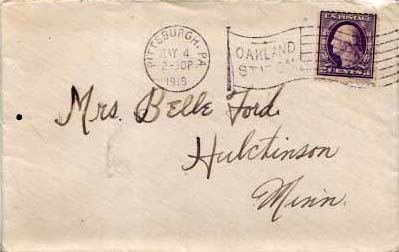 PITTSBURGH, PA.
MAY 4
2-30P
1918
OAKLAND
STATION
U.S. POSTAGE
Mrs. Belle Ford.
Hutchinson
Minn.